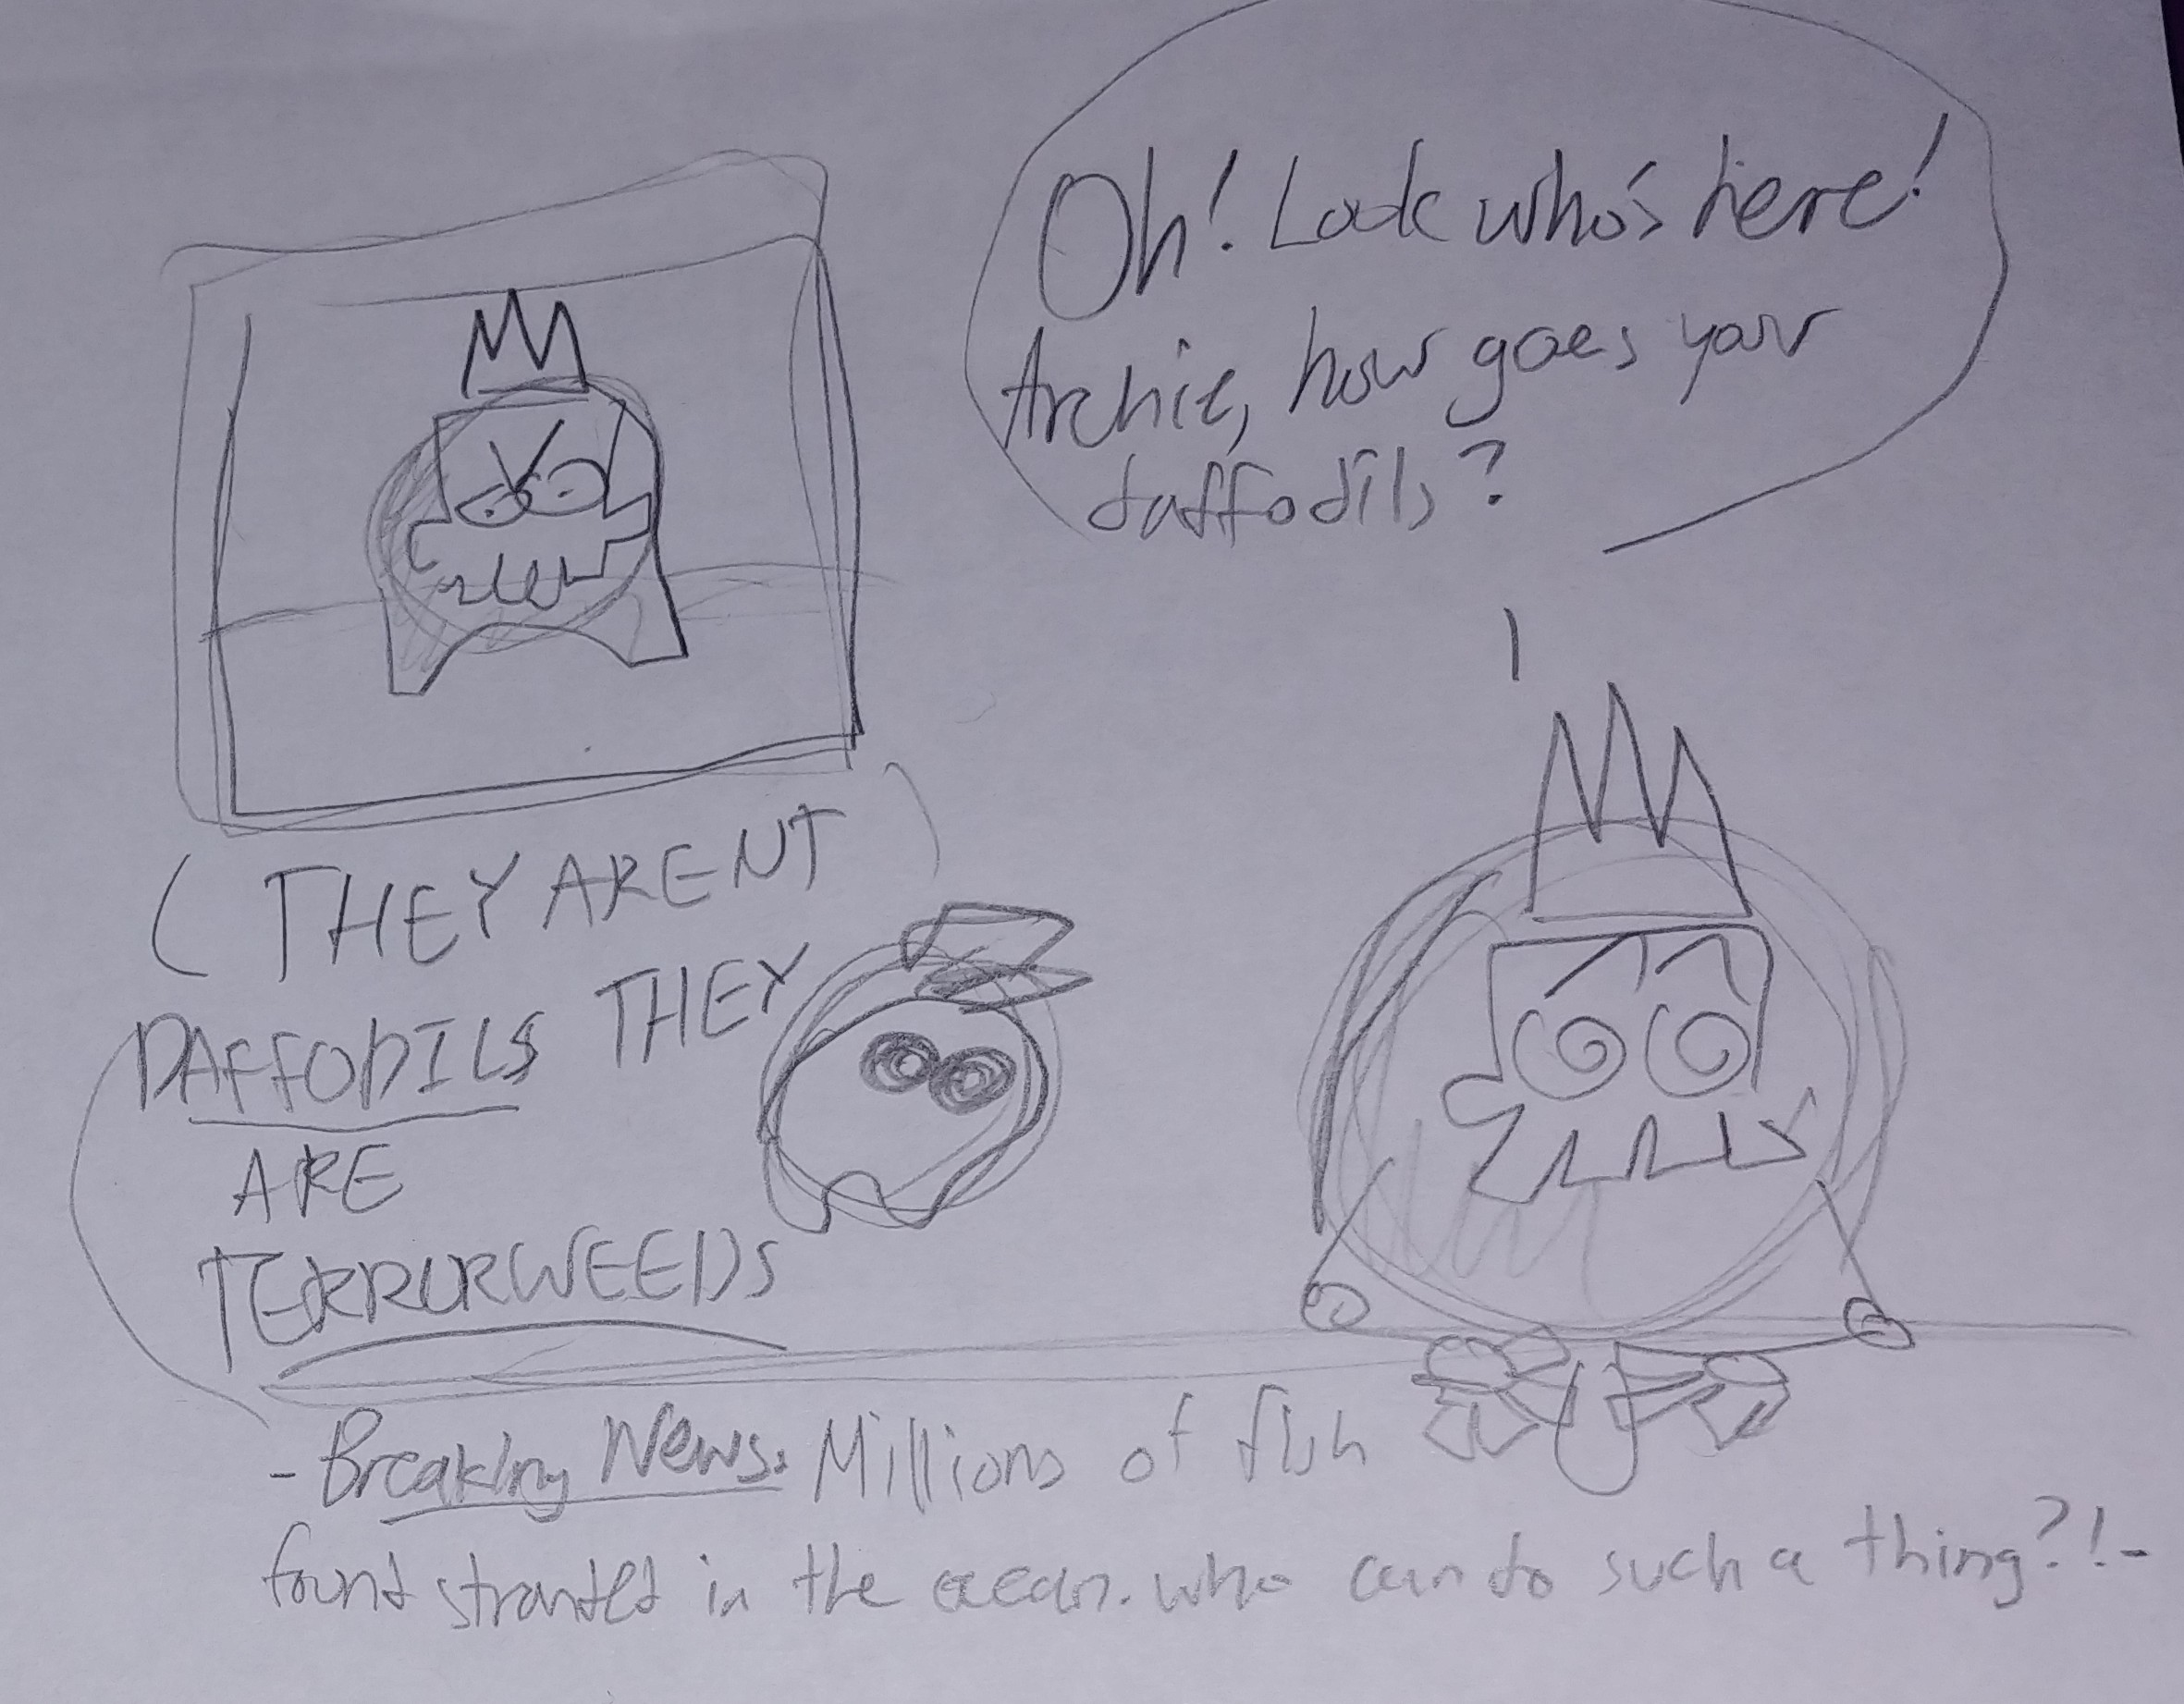 Oh! Look who's here!
Archie, how goes your
daffodils?
(THEY ARENT)
DAFFODILS THEY
ARE
TERRORWEEDS
-Breaking News: Millions of fish
found stranted in the ocean. who can do such a thing?!-